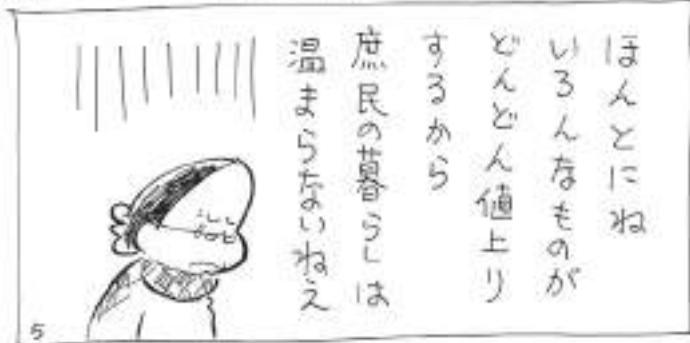 ほんとにね
いろんなものが
どんどん値上り
するから
庶民の暮らしは
温まらないねえ
5